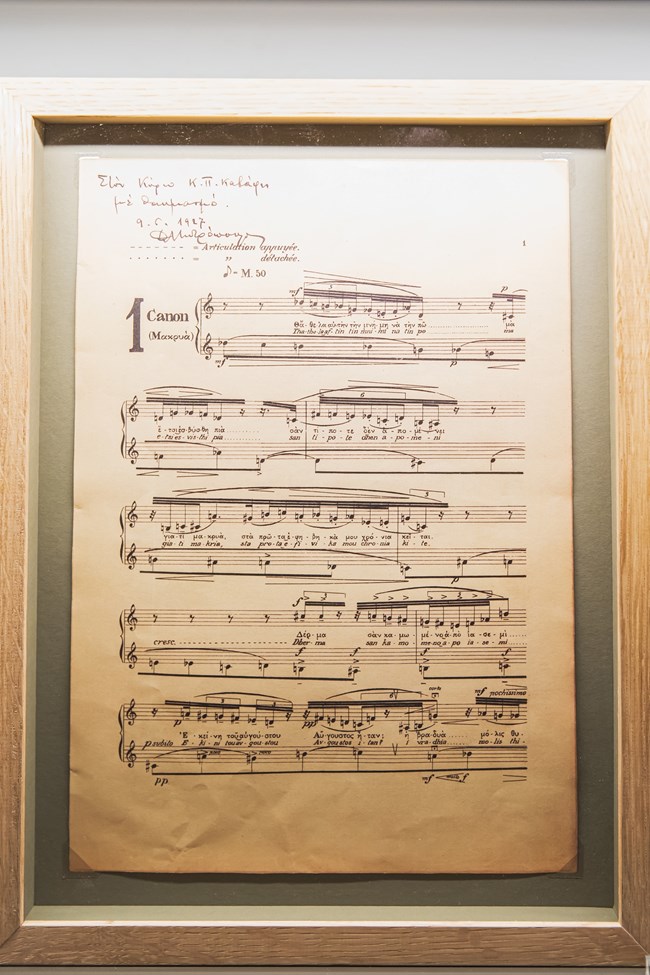 Στὸν Κύριο Κ.Π. Καβάφη
μὲ θαυμασμό.
9.5.1927
ΔΜητρόπουλος
= Articulation appuyée.
= „ détachée.
= M. 50
1
1 Canon
(Μακρυά)
mf
p
Θἄ- θε λα αὐτὴν τὴν μνή - μη νὰ τὴν πῶ
μα
mf
p
6
ἔ - τσι ἐσ - βύσ - θη πιὰ
σὰν τί - πο - τε δὲν ἀ - πο - μέ - νει
e - tsi es - vis - thi pia
san ti - po - te dhen a - po - me - ni
3
για - τὶ μα - κρυά, στὰ πρῶ - τα ἐ - φη - βι - κά μου χρό - νια κεῖ - ται.
gia - ti ma - kria, sta pro - ta e - fi - vi - ka mou chro - nia ki - te.
p
f
3
3
3
cresc.
Δέρ - μα σὰν κα - μω - μέ - νο ἀ - πὸ ἰα - σε - μί
Dher - ma san ka - mo - me - no a - po ia - se - mi
f
f
f
p
3
3
6
mf
pochissimo
Ἐ - κεί - νη τοῦ αὐ - γού - στου Αὔ - γουστος ἦ - ταν; βρα - δυὰ μό - λις θυ -
p subito
E - ki - ni tou av - gou - stou Av - gou stos i - tan? vra - dhia molis thi -
pp
mf
f